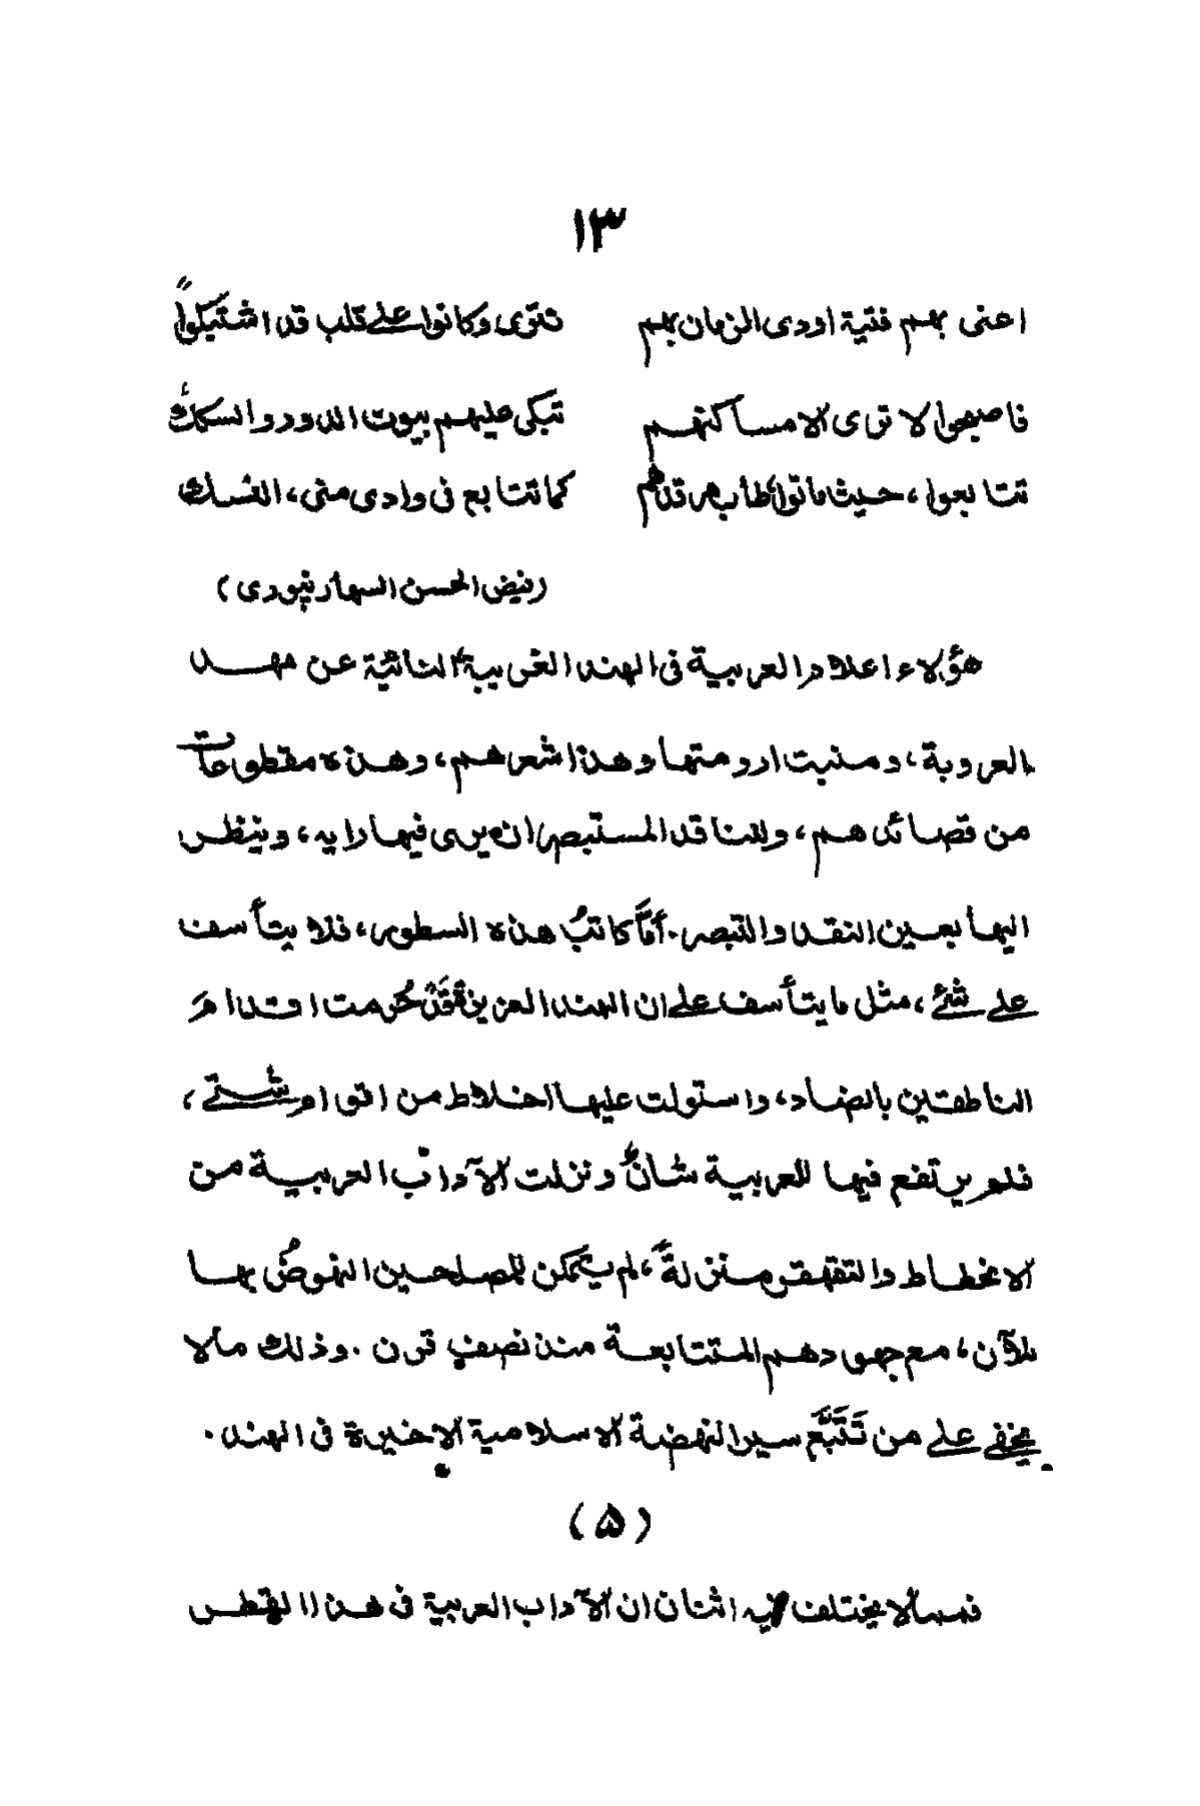 ١٣
اعنى بهم فتية اودى الزمان بهم تترى وكانوا على قلب قد اشتبكوا
فاصبحوا لا ترى الا مساكنهم تبكى عليهم بيوت الدور والسكك
تتابعوا، حيث ماتوا طاب مرقدهم كما تتابع فى وادى منى، النسك
(فيض الحسن السهارنپورى)
هؤلاء اعلام العربية فى الهند الغريبة النائية عن مهد
العروبة، ومنبت ارومتها وهذا شعرهم، وهذه مقطوعات
من قصائدهم، وللناقد المستبصر ان يرى فيها رايه، وينظر
اليها بعين النقد والتبصر. أمَّا كاتبُ هذه السطور، فلا يتأسف
على شئ، مثل ما يتأسف على ان الهند العزيزة قَدْ حُرمت اقدامَ
الناطقين بالضاد، واستولت عليها اخلاط من اقوام شتى،
فلم يرتفع فيها للعربية شانٌ ونزلت الآدابُ العربية من
الانحطاط والتقهقر منزلةً، لم يتمكن للمصلحين النهوضُ بها
للآن، مع جهودهم المتتابعة منذ نصف قرن. وذلك مالا
يخفى على من تَتَبَّعَ سير النهضة الاسلامية الاخيرة فى الهند.
(۵)
فمما لا يختلف فيه اثنان ان الآداب العربية فى هذا القطر